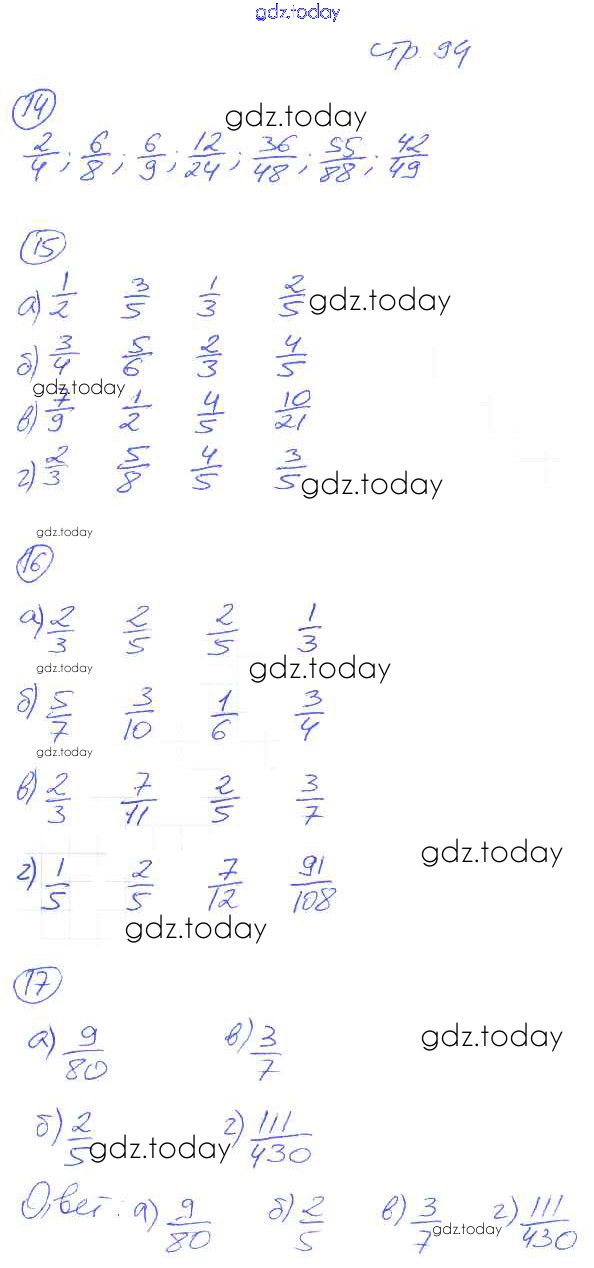 gdz.today
стр. 94
14
gdz.today
2/4; 6/8; 6/9; 12/24; 36/48; 55/88; 42/49
15
а) 1/2 3/5 1/3 2/5 gdz.today
б) 3/4 5/6 2/3 4/5
gdz.today
в) 7/9 1/2 4/5 10/21
г) 2/3 5/8 4/5 3/5 gdz.today
gdz.today
16
а) 2/3 2/5 2/5 1/3
gdz.today gdz.today
б) 5/7 3/10 1/6 3/4
gdz.today
в) 2/3 7/11 2/5 3/7
gdz.today
г) 1/5 2/5 7/12 91/108
gdz.today
17
а) 9/80 в) 3/7 gdz.today
б) 2/5 gdz.today г) 111/430
Ответ: а) 9/80 б) 2/5 в) 3/7 г) 111/430
gdz.today